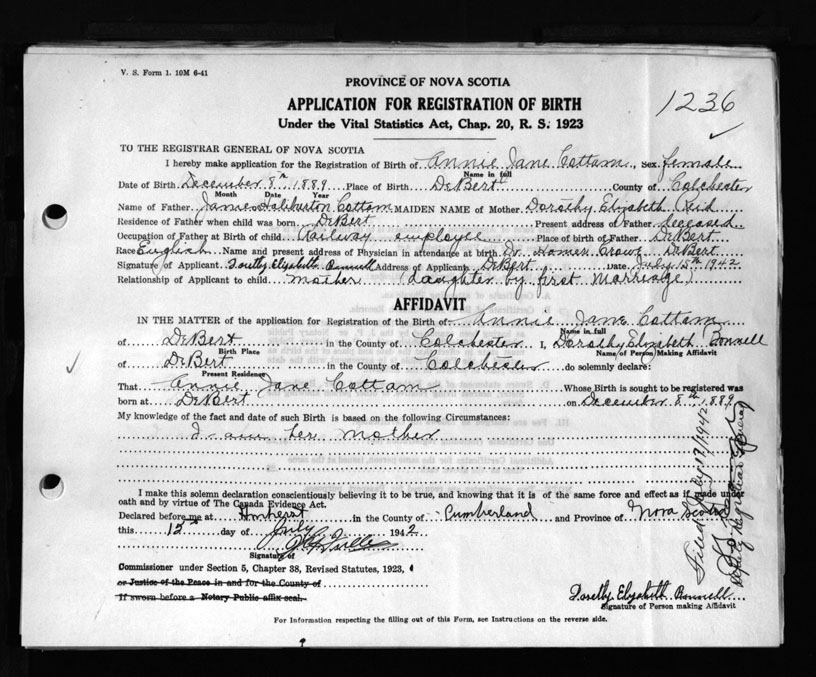 V. S. Form 1. 10M 6-41
PROVINCE OF NOVA SCOTIA
APPLICATION FOR REGISTRATION OF BIRTH
1236
Under the Vital Statistics Act, Chap. 20, R. S. 1923
TO THE REGISTRAR GENERAL OF NOVA SCOTIA
I hereby make application for the Registration of Birth of Annie Jane Cottam, Sex female
Name in full
Date of Birth December 8th 1889 Place of Birth DeBert County of Colchester
Month Date Year
Name of Father James Haliburton Cottam MAIDEN NAME of Mother Dorothy Elizabeth Reid
Residence of Father when child was born DeBert Present address of Father deceased
Occupation of Father at Birth of child Railway employee Place of birth of Father DeBert
Race English Name and present address of Physician in attendance at birth Dr Homer Crowe DeBert
Signature of Applicant Dorothy Elizabeth Bonnell Address of Applicant DeBert Date July 1942
Relationship of Applicant to child mother (daughter by first marriage)
AFFIDAVIT
IN THE MATTER of the application for Registration of the Birth of Annie Jane Cottam
Name in full
of DeBert in the County of Colchester I, Dorothy Elizabeth Bonnell
Birth Place Name of Person Making Affidavit
of DeBert in the County of Colchester do solemnly declare:
Present Residence
That Annie Jane Cottam Whose Birth is sought to be registered was
born at DeBert on December 8th 1889
My knowledge of the fact and date of such Birth is based on the following Circumstances:
I am her mother
I make this solemn declaration conscientiously believing it to be true, and knowing that it is of the same force and effect as if made under
oath and by virtue of The Canada Evidence Act.
Declared before me at Amherst in the County of Cumberland and Province of Nova Scotia
this 12th day of July 1942
Signature of
Commissioner under Section 5, Chapter 38, Revised Statutes, 1923,
or Justice of the Peace in and for the County of
If sworn before a Notary Public affix seal.
Dorothy Elizabeth Bonnell
Signature of Person making Affidavit
For Information respecting the filling out of this Form, see Instructions on the reverse side.
Filed July 17/1942
Deputy Registrar General